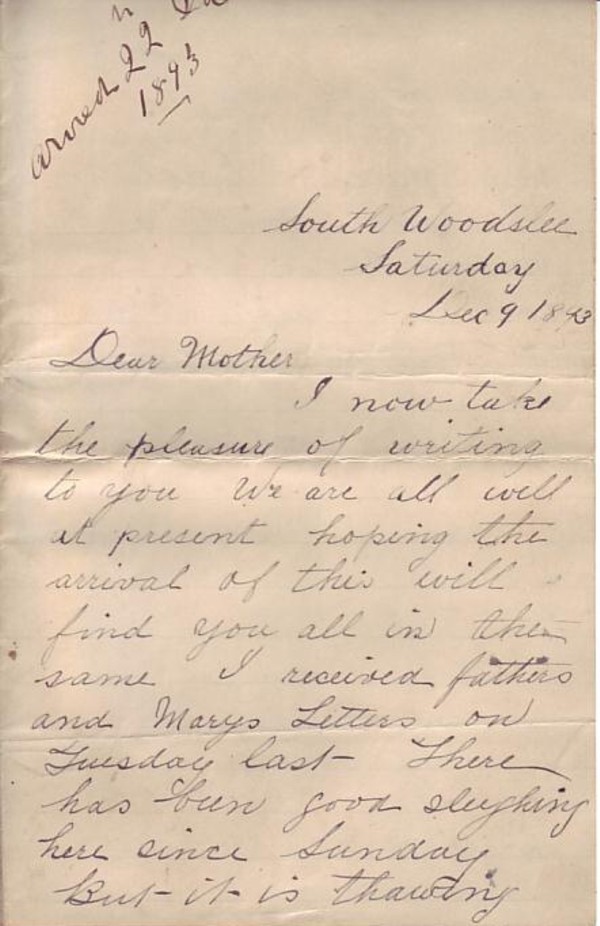 arived 22
1893
South Woodslee
Saturday
Dec 9 1893
Dear Mother
I now take
the pleasure of writing
to you We are all well
at present hoping the
arrival of this will
find you all in the
same I received fathers
and Marys Letters on
Tuesday last There
has been good sleighing
here since Sunday
But it is thawing